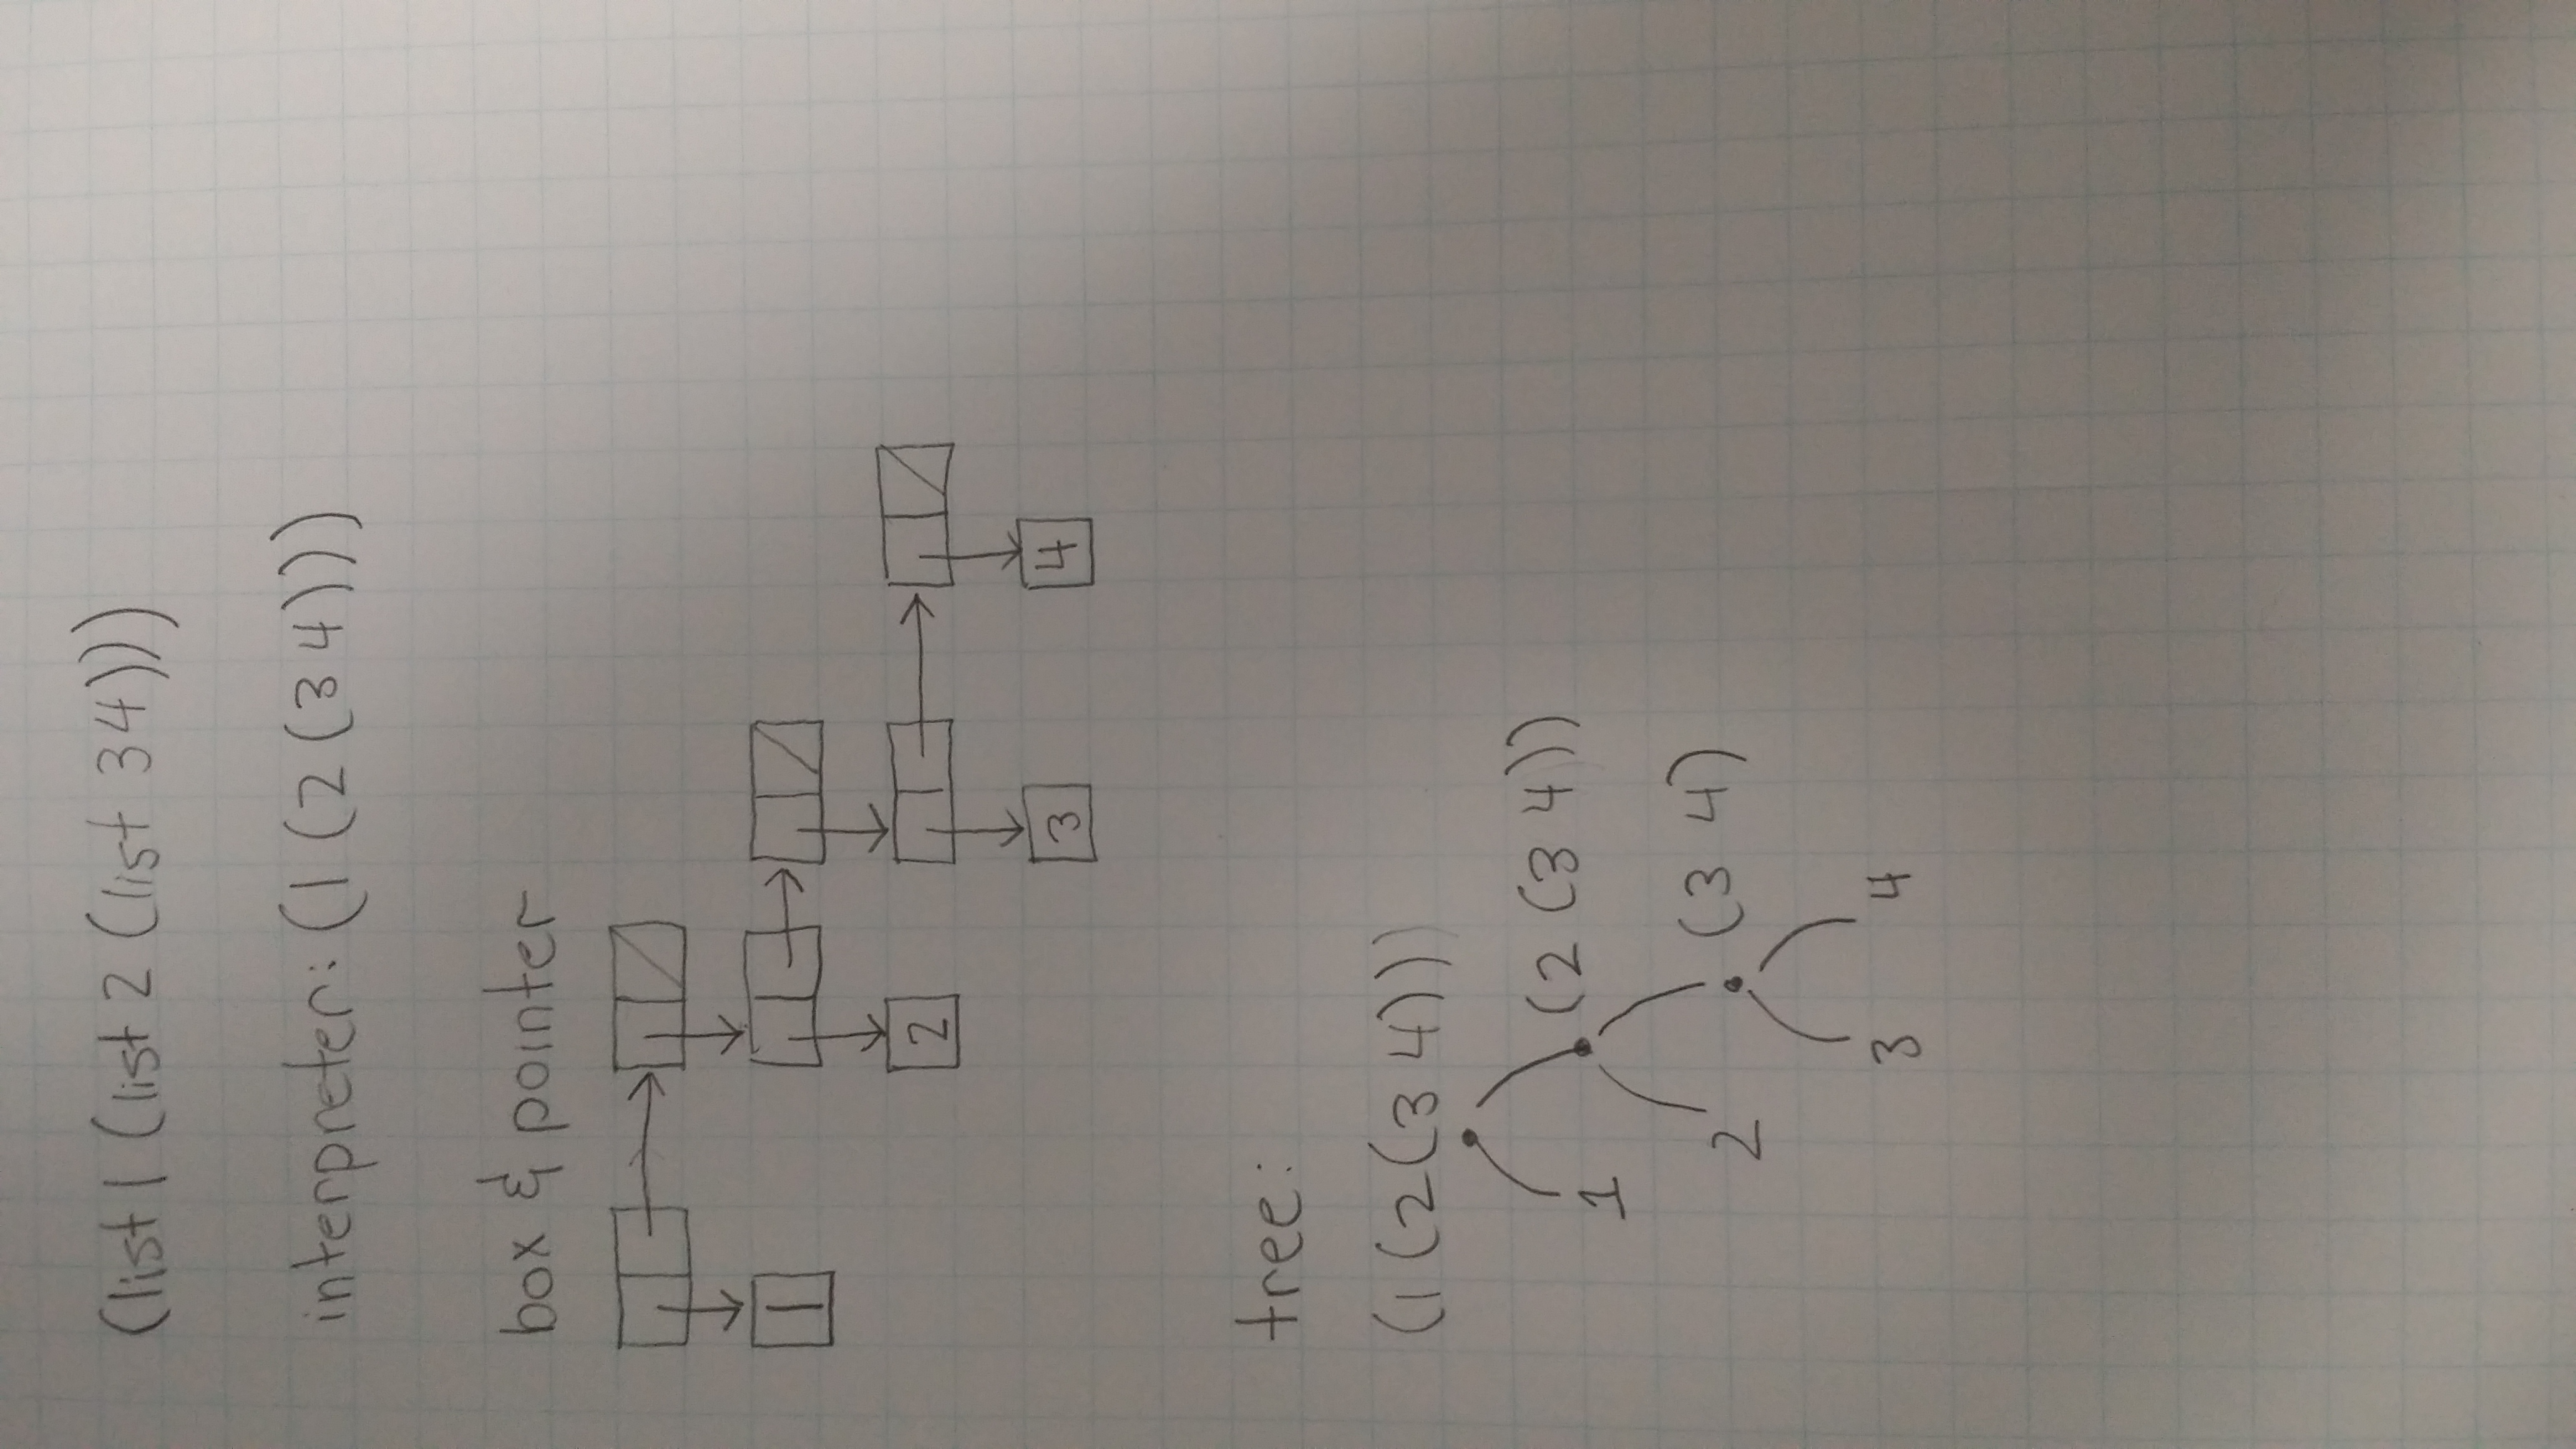 (list 1 (list 2 (list 3 4)))
interpreter: (1 (2 (3 4)))
box & pointer
1
2
3 4
tree:
(1 (2 (3 4)))
(2 (3 4))
1
(3 4)
2
3 4